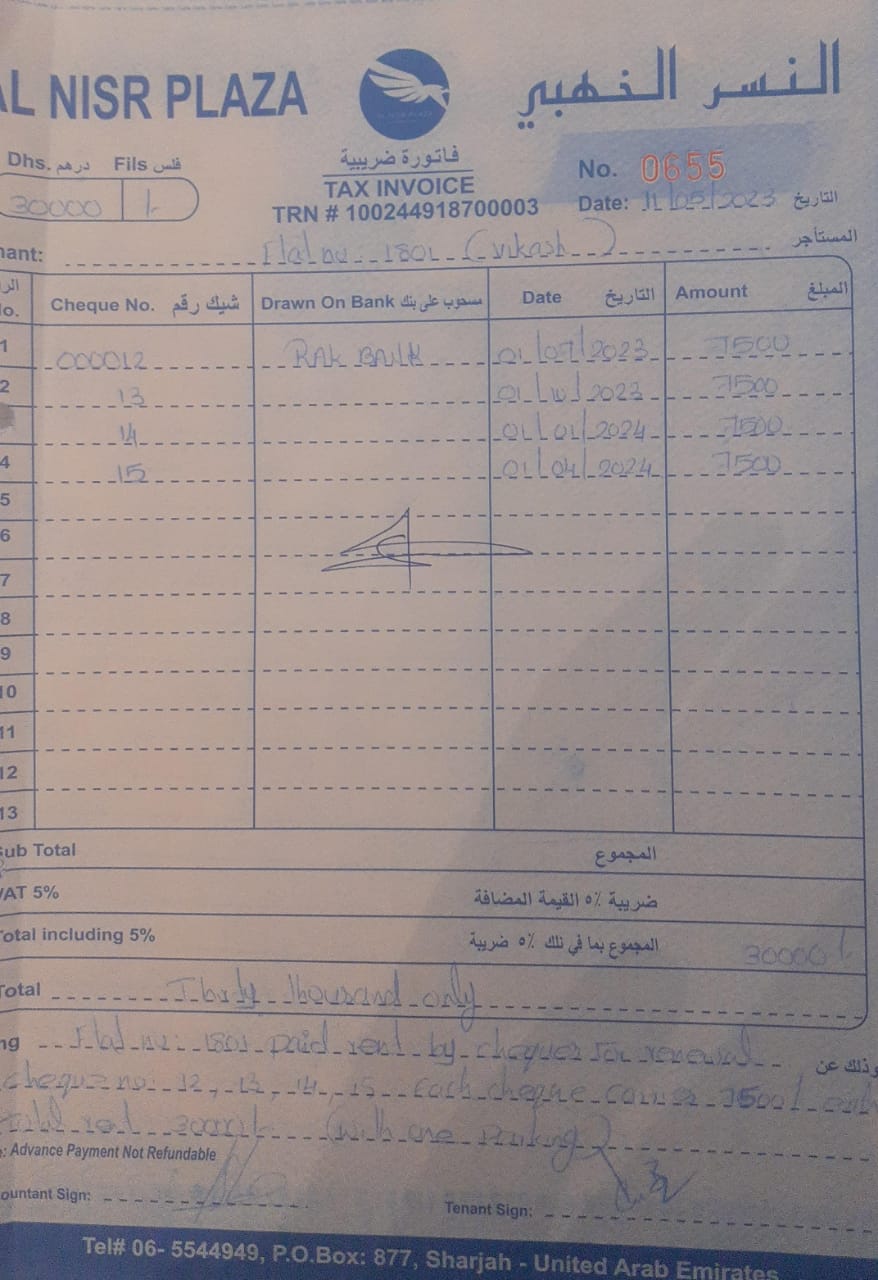 AL NISR PLAZA
النسر الذهبي
Dhs. درهم Fils فلس
30000 /-
فاتورة ضريبية
TAX INVOICE
TRN # 100244918700003
No. 0655
Date: 11/05/2023 التاريخ
nant: Flat no: 1801 (vikash) المستأجر
Cheque No. شيك رقم Drawn On Bank مسحوب على بنك Date التاريخ Amount المبلغ
1 000012 RAK BANK 01/07/2023 7500
2 13 01/10/2023 7500
14 01/01/2024 7500
4 15 01/04/2024 7500
5
6
7
8
9
10
11
12
13
Sub Total المجموع
VAT 5% ضريبة ٥٪ القيمة المضافة
Total including 5% المجموع بما في ذلك ٥٪ ضريبة 30000/-
Total Thirty thousand only
ng Flat no: 1801 paid rent by cheques for renewal وذلك عن
cheque no: 12, 13, 14, 15 each cheque 7500/-
total rent 30000/- (with one parking)
: Advance Payment Not Refundable
ountant Sign:
Tenant Sign:
Tel# 06- 5544949, P.O.Box: 877, Sharjah - United Arab Emirates